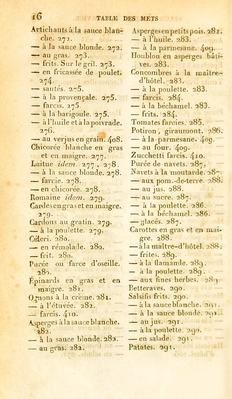 16 TABLE DES METS
Artichauts à la sauce blan-
che. 272.
— à la sauce blonde. 272.
— au gras. 273.
— frits. Sur le gril. 273.
— en fricassée de poulet.
274.
— sautés. 275.
— à la provençale. 275.
— farcis. 275.
— à la barigoule. 275.
— à l'huile et à la poivrade.
276.
— au verjus en grain. 408.
Chicorée blanche en gras
et en maigre. 277.
Laitue idem. 277, 278.
— à la sauce blonde. 278.
— farcie. 278.
— en chicorée. 278.
Romaine idem. 279.
Cardes en gras et en maigre.
279.
Cardons au gratin. 279.
— à la poulette. 279.
Céleri. 280.
— en rémolade. 280.
— frit. 280.
Purée ou farce d'oseille.
281.
Épinards en gras et en
maigre. 281.
Ognons à la crème. 281.
— à l'étuvée. 282.
— farcis. 410.
Asperges à la sauce blanche.
282.
— à la sauce blonde. 282.
— au gras. 282.
Asperges en petits pois. 282.
— à l'huile. 283.
— à la parmesane. 409.
Houblon en asperges hâti-
ves. 283.
Concombres à la maître-
d'hôtel. 283.
— à la poulette. 283.
— farcis. 284.
— à la béchamel. 283.
— frits. 284.
Tomates farcies. 285.
Potiron, giraumont. 286.
— à la parmesane. 409.
— au four. 409.
Zucchetti farcis. 410.
Purée de navets. 287.
Navets à la moutarde. 287.
— aux pom.-de-terre. 288.
— au jus. 288.
— au sucre. 287.
— à la poulette. 286.
— à la béchamel. 286.
— glacés. 287.
Carottes en gras et en mai-
gre. 288.
— à la maître-d'hôtel. 288.
— frites. 289.
— à la flamande. 289.
— à la poulette. 289.
— aux fines herbes. 289.
Betteraves. 290.
Salsifis frits. 290.
— à la sauce blanche. 291.
— à la sauce blonde. 291.
— au jus. 291.
— à la poulette. 290.
— en salade. 291.
Patates. 291.